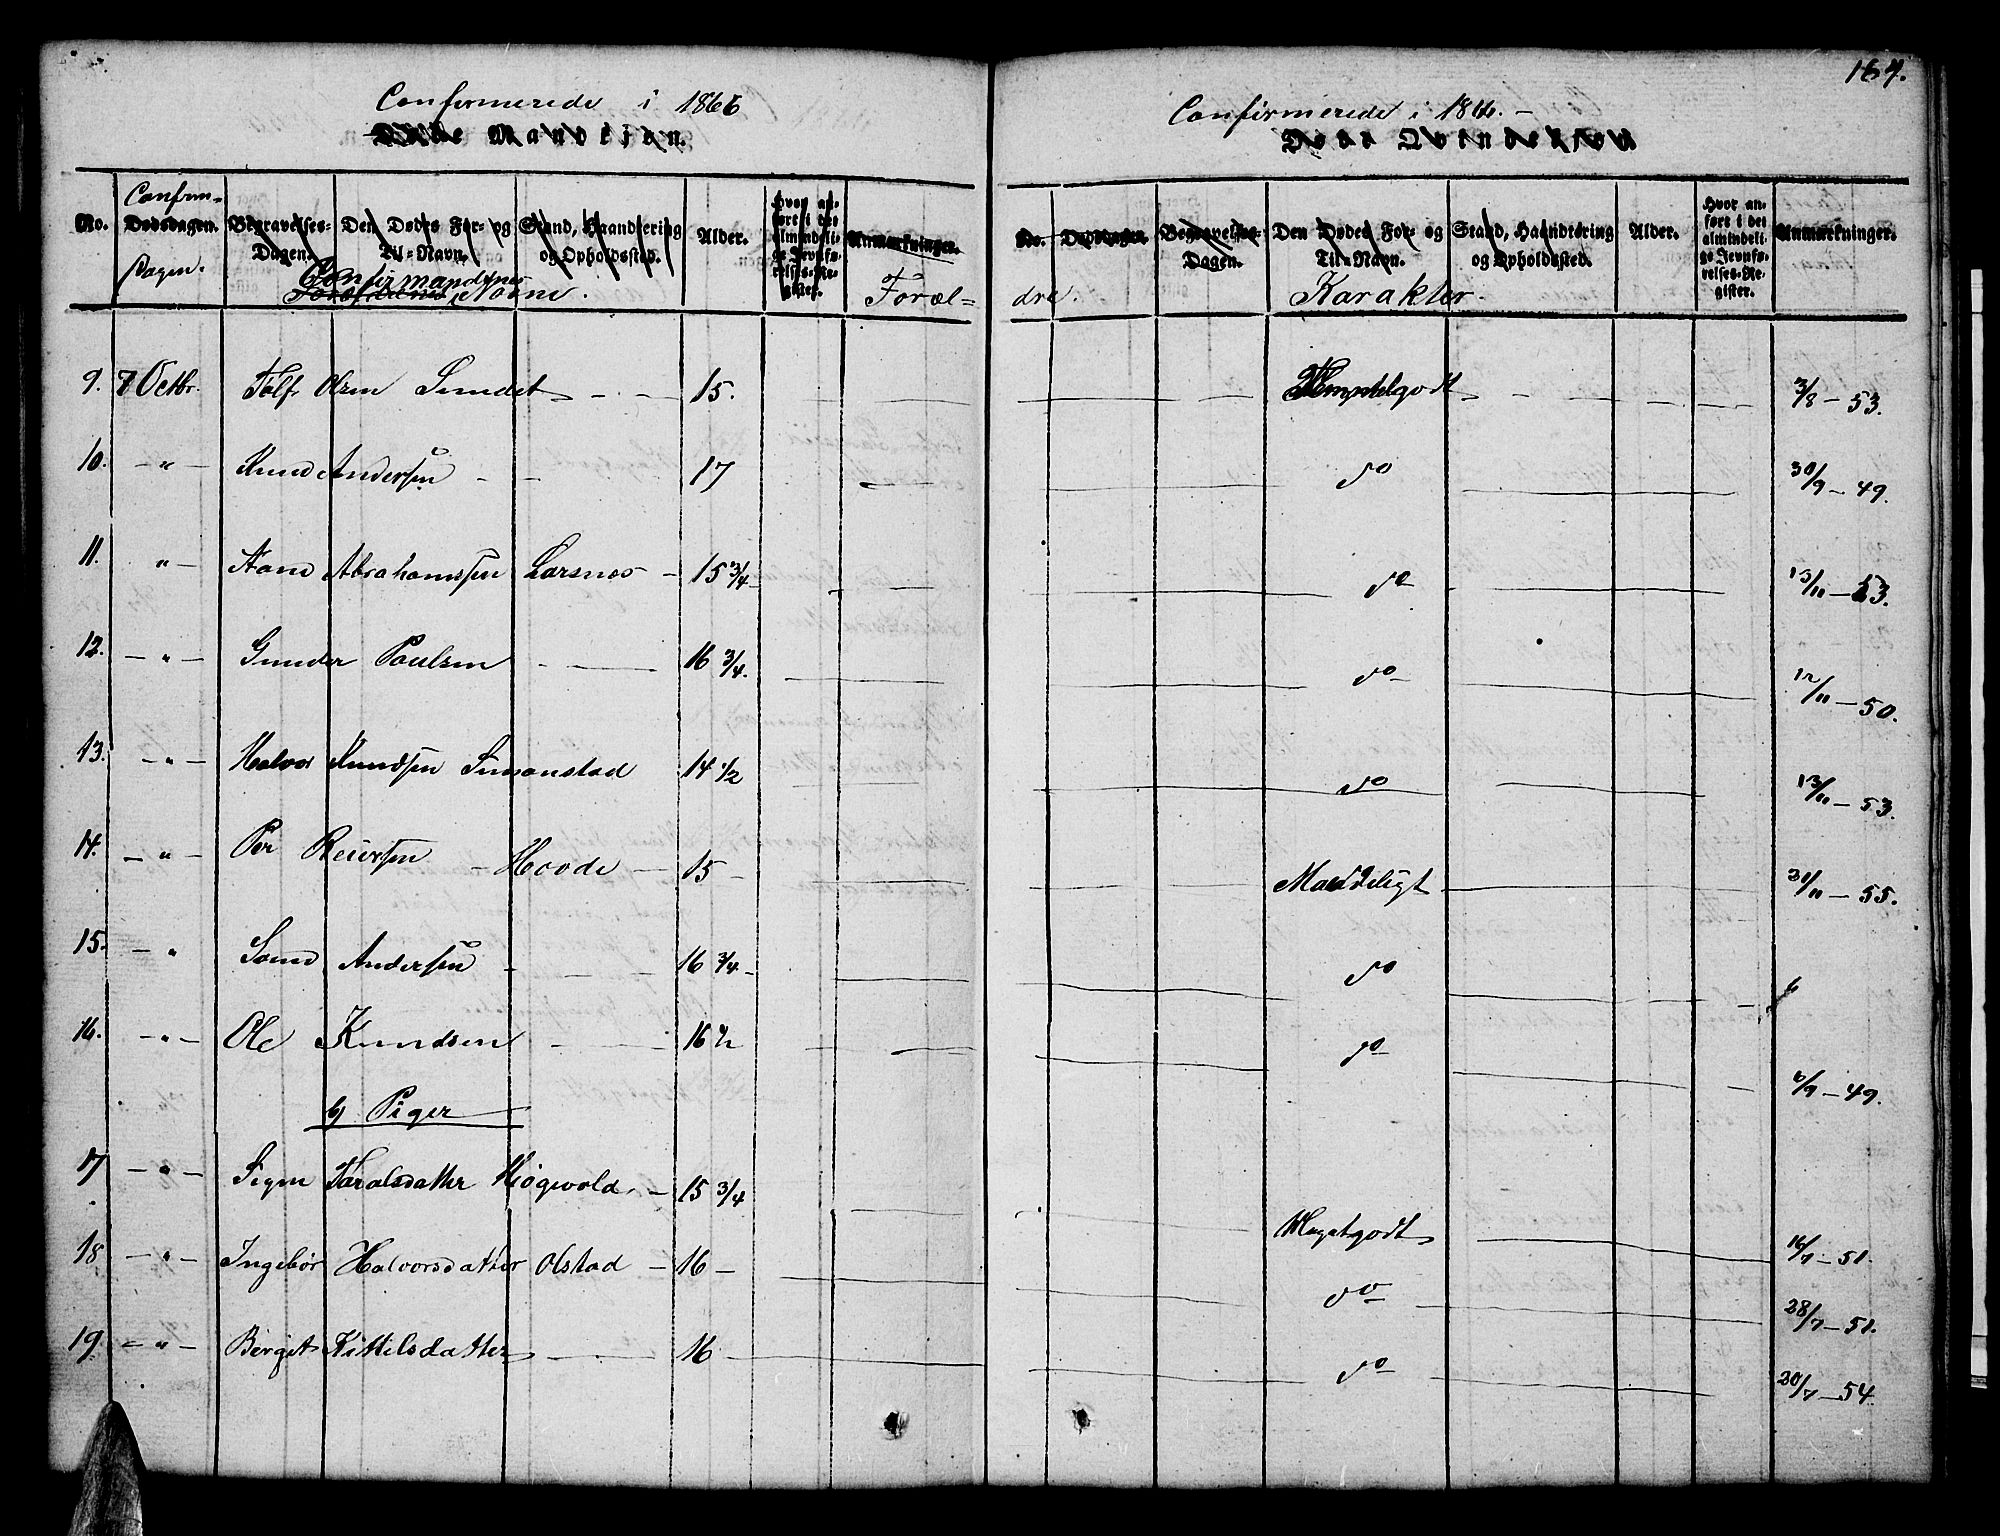 184.
Confirmerede i 1866
Døde Mandkiøn.
No.
Confirm=
Dødsdagen.
Dagen.
Begravelses-Dagen.
Den Dødes For- og Til-Navn.
Confirmandernes Navne.
Stand, Haandtering og Opholdssted.
Alder.
Hvor anført i det almindelige Jevnførelses-Register.
Anmærkninger.
Foræl=
9. 7 Octbr. Olsen Sundet 15.
10. — " — Knud Andersen 17
11. " — Aanu Abrahamssen Larsnes — 15 3/4
12. — " — Gunder Paulsen 16 3/4.
13. — " — Halvor Knudsen Simonstad 14 1/2
14. — " — Per Reiersen — Hovde — 15 —
15. — " Andersen 16 3/4
16. — " — Ole Knudsen 16 1/2
b) Piger
17 — " — Signe Taralsdatter 15 3/4
18 — " — Ingebor Halvorsdatter Olstad — 16 —
19. — " — Berget Kittilsdatter 16 —
Confirmerede i 1866. —
Døde Qvindekiøn
No.
Dødsdagen.
Begravelses-Dagen.
Den Dødes For- og Til-Navn.
Stand, Haandtering og Opholdssted.
Alder.
Hvor anført i det almindelige Jevnførelses-Register.
Anmærkninger.
dre.
Karakter.
3/8 — 53.
do 30/9 — 49.
do 13/11 — 53.
do 12/11 — 50.
do 13/11 — 53.
Maadeligt — 55.
do 6
do 6/9 — 49.
Megetgodt 16/7 — 51.
do 28/7 — 51.
do 20/7 — 54.